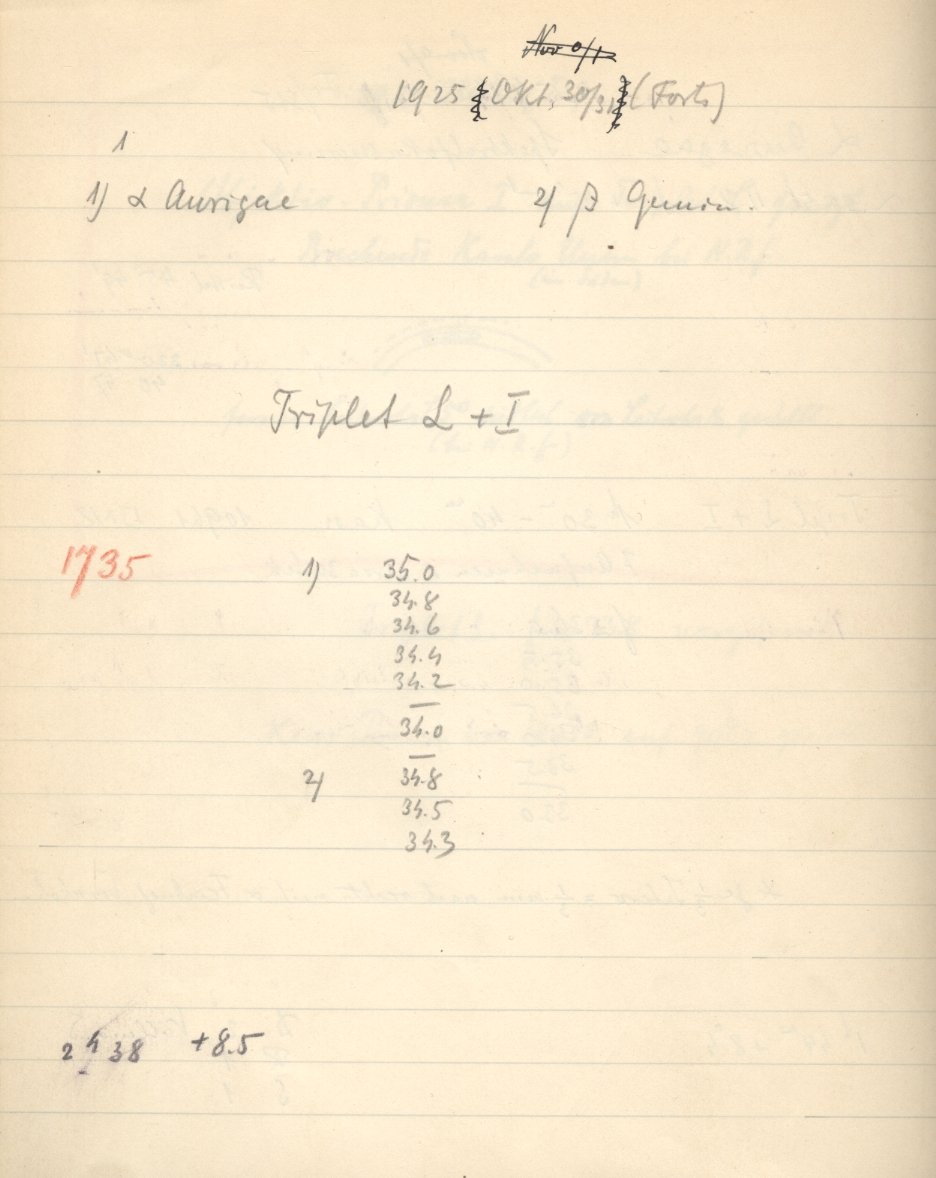 Nov 0/1
1925 Okt. 30/31 (Forts)
1
1) α Aurigae 2) β Gemin.
Triplet L + I
1735 1) 35.0
34.8
34.6
34.4
34.2
34.0
2) 34.8
34.5
34.3
2 h 38 +8.5